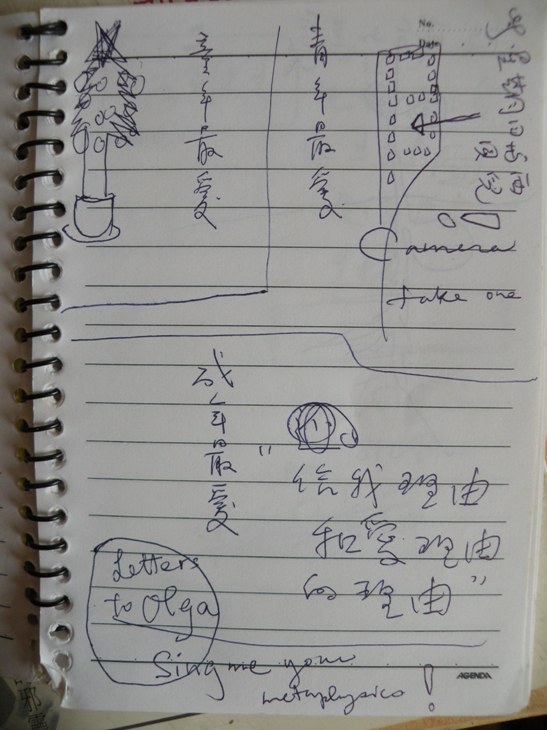 No.
Date
青年最愛
年最愛
Camera
take one
成年最愛
"信我理由
和愛理由
的理由"
Letters
to Olga
Sing me your
metaphysics!
AGENDA